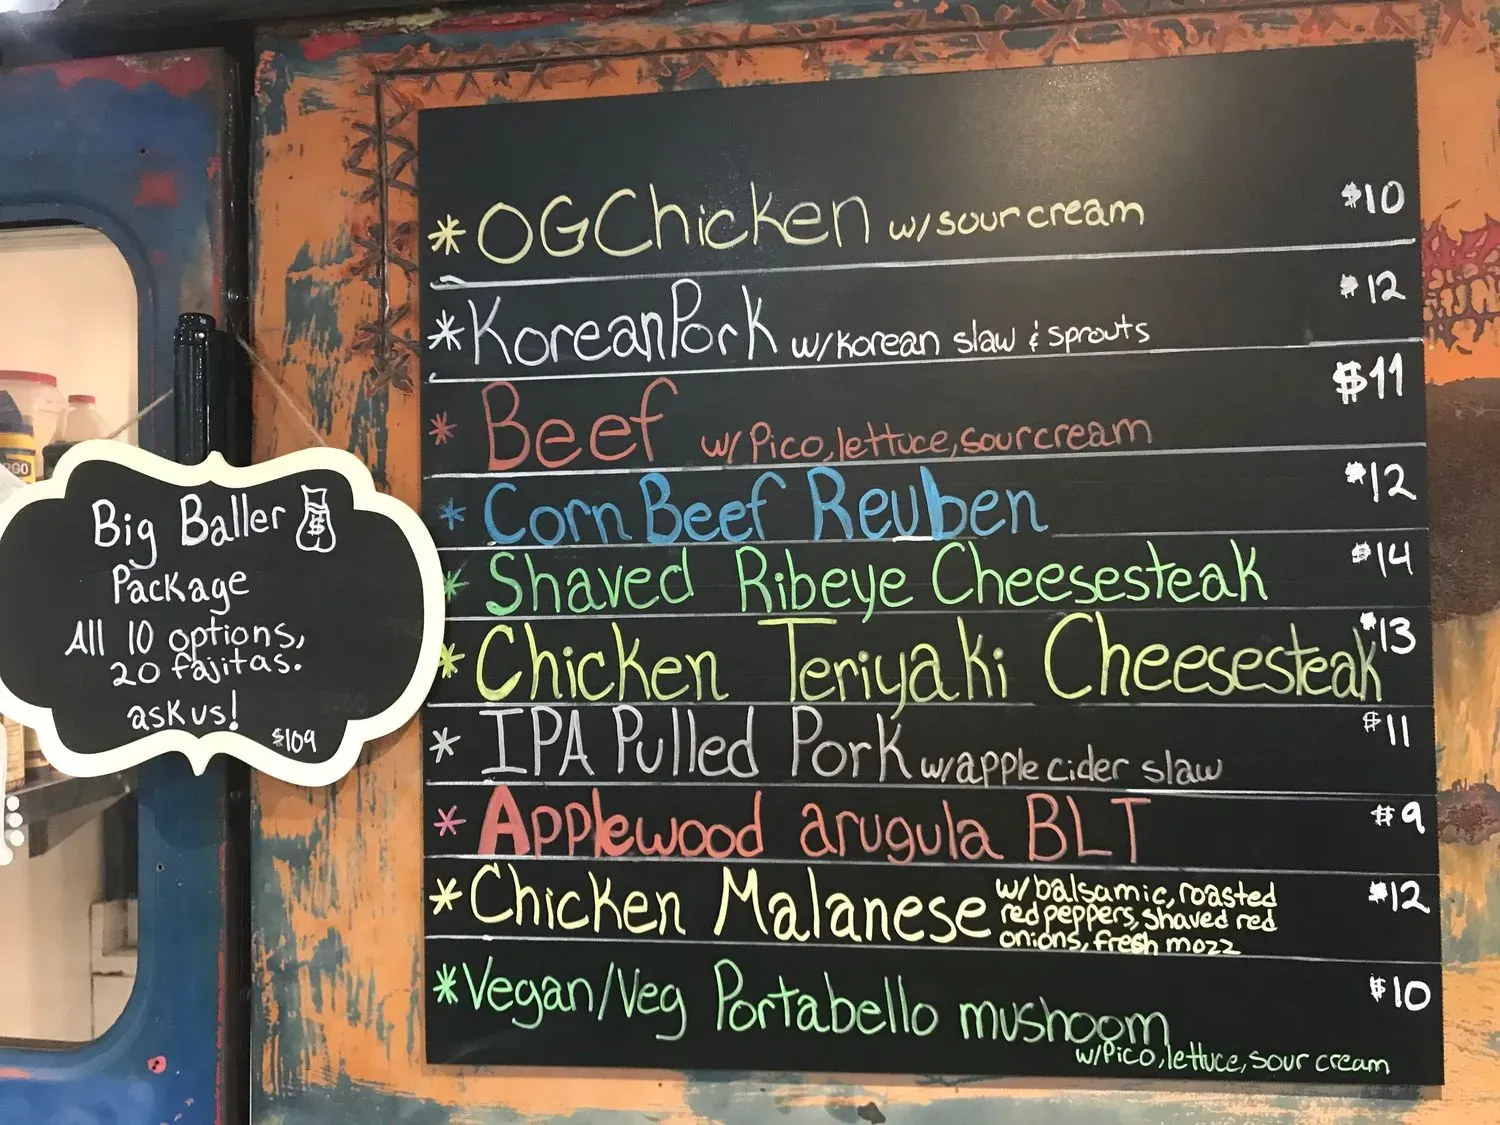 Big Baller
Package
All 10 options,
20 fajitas.
ask us!
$109
* OG Chicken w/sour cream $10
* Korean Pork w/korean slaw & sprouts $12
* Beef w/ Pico, lettuce, sour cream $11
* Corn Beef Reuben $12
* Shaved Ribeye Cheesesteak $14
* Chicken Teriyaki Cheesesteak $13
* IPA Pulled Pork w/apple cider slaw $11
* Applewood arugula BLT $9
* Chicken Malanese w/balsamic, roasted $12
red peppers, shaved red
onions, fresh mozz
* Vegan/Veg Portabello mushoom $10
w/Pico, lettuce, sour cream